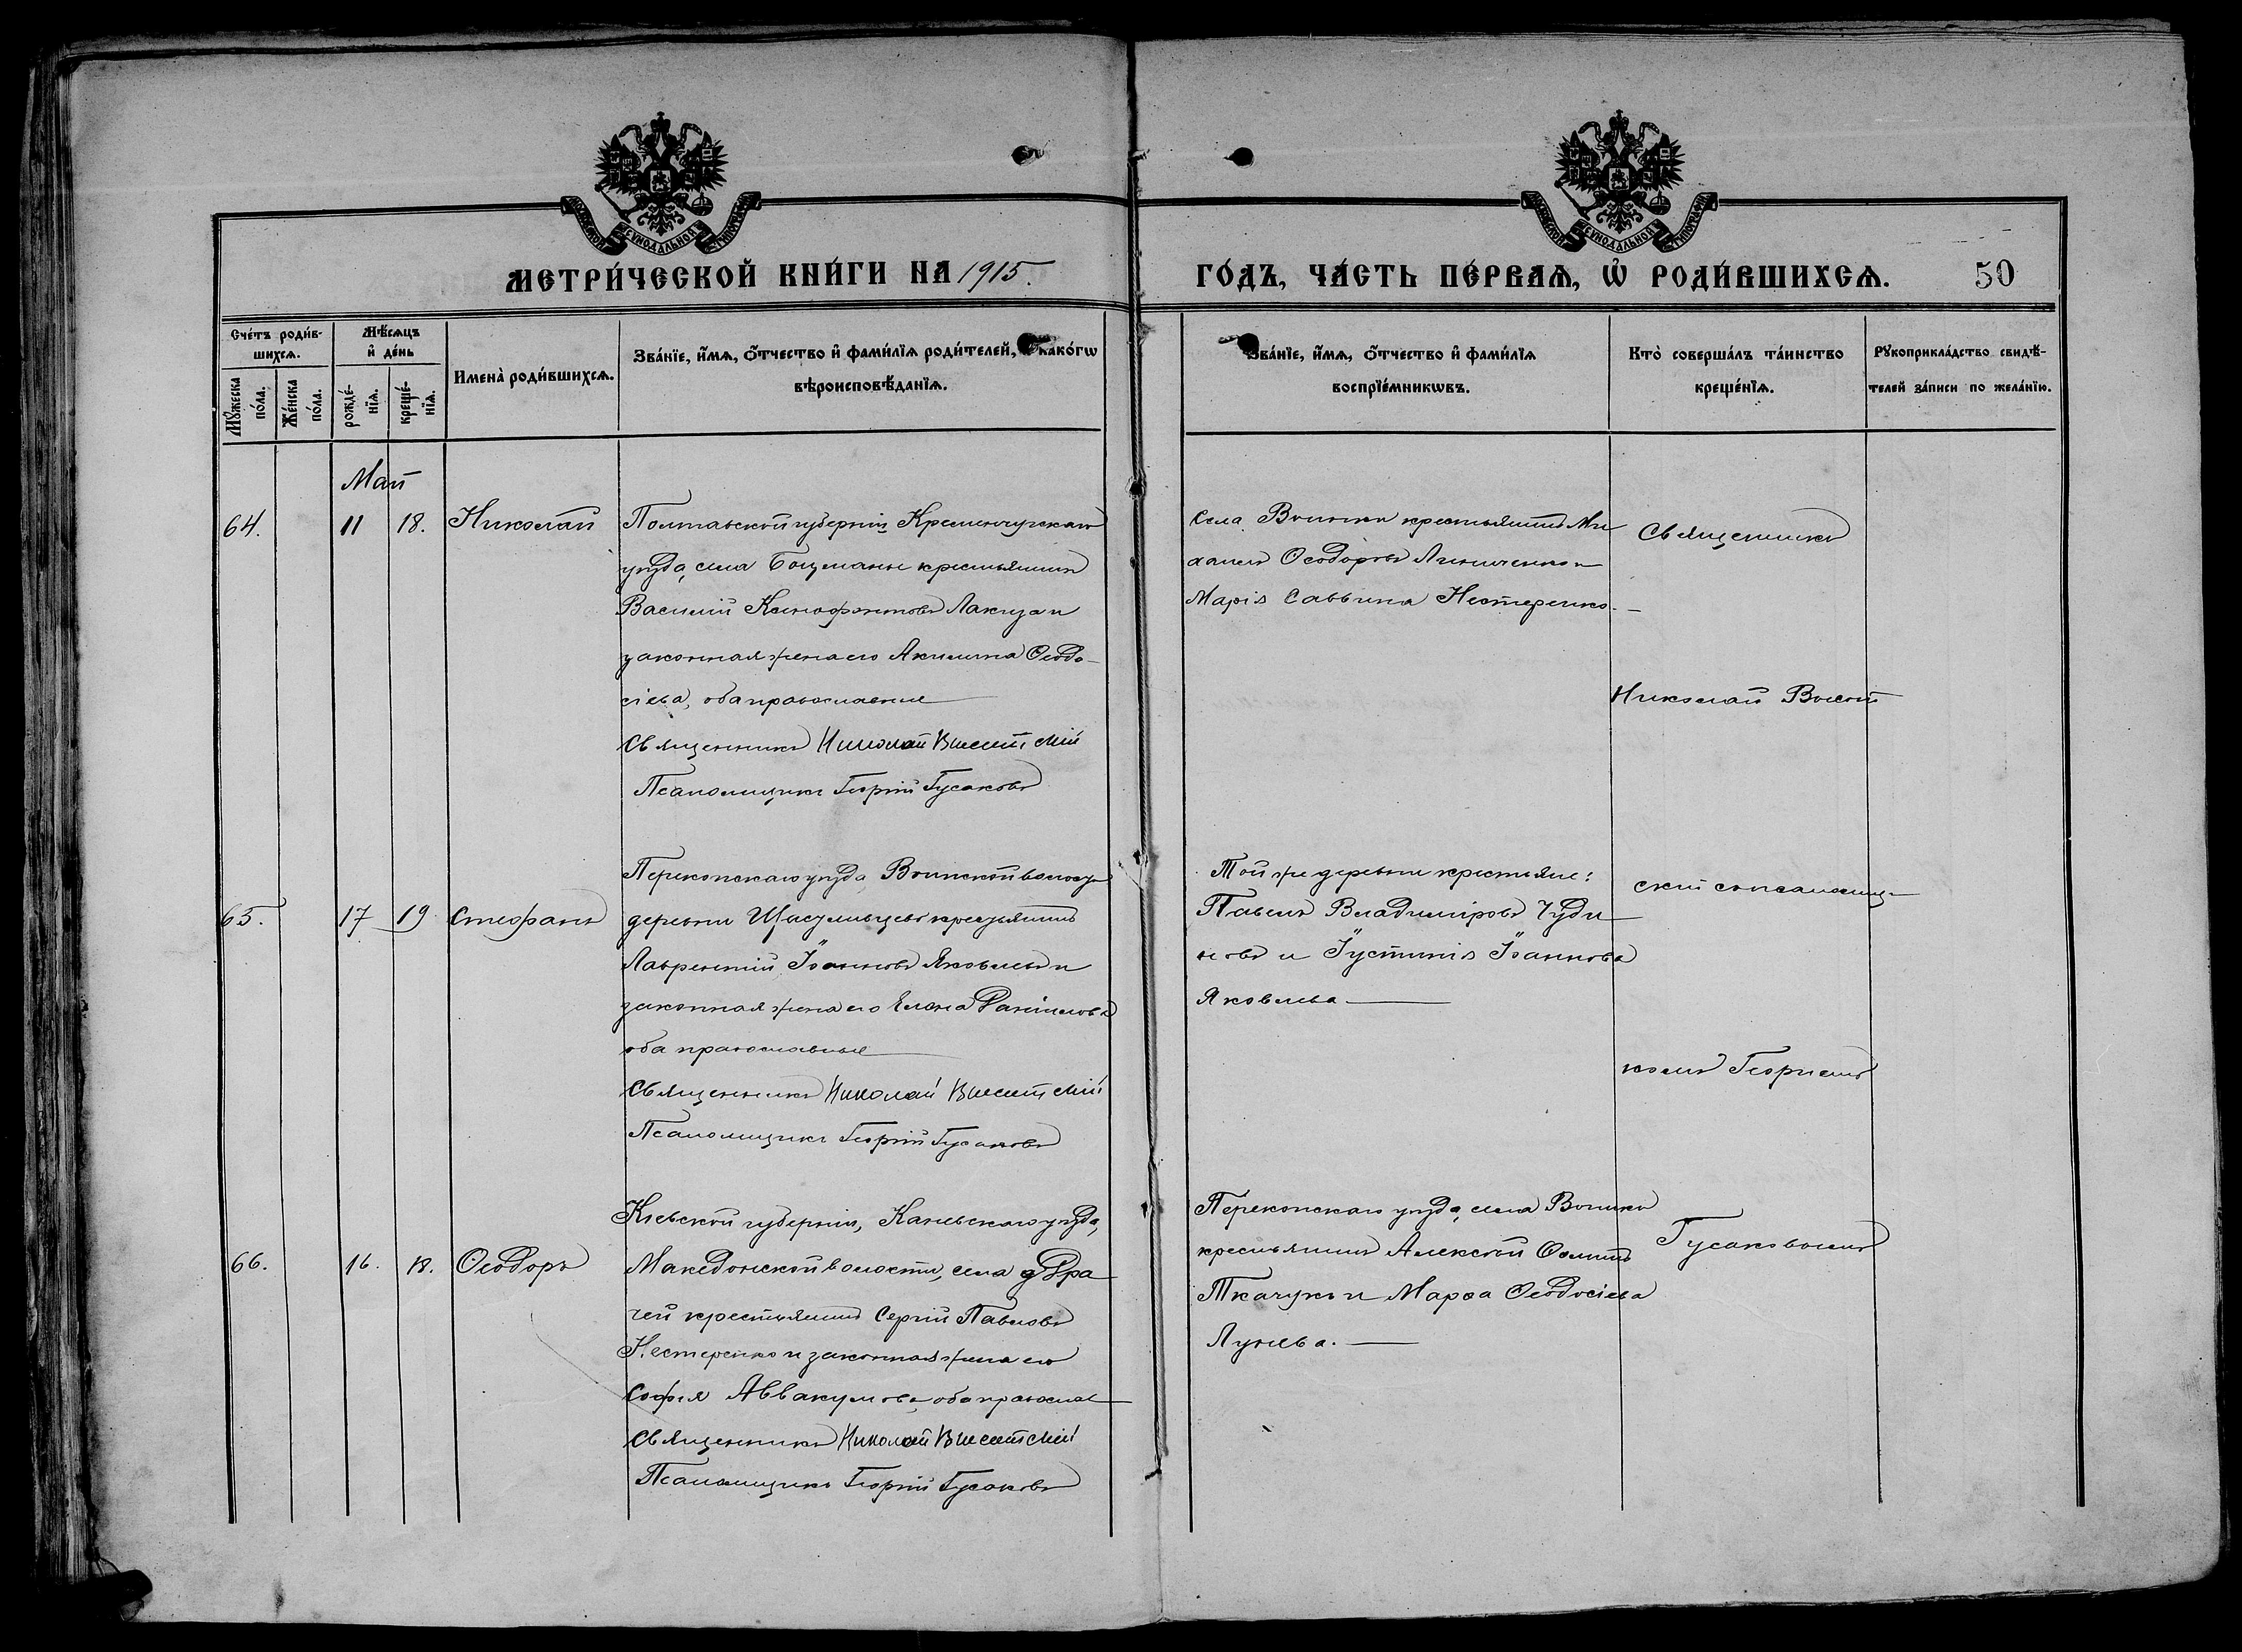 МЕТРИ́ЧЕСКОЙ КНИ́ГИ НА 1915.
ГО́ДЪ, ЧА́СТЬ ПЕ́РВАѦ, Ѡ҆ РОДИ́ВШИХСѦ.
50
Сче́тъ роди́в-
шихсѧ.
Мꙋ́жеска
по́ла.
Же́нска
по́ла.
Мѣ́сѧцъ
и҆ де́нь
рожде́-
нїѧ.
креще́-
нїѧ.
Имена̀ роди́вшихсѧ.
Зва́нїе, и҆́мѧ, ѻ҆́тчество и҆ фами́лїѧ роди́телей, како́гѡ
вѣроисповѣ́данїѧ.
Зва́нїе, и҆́мѧ, ѻ҆́тчество и҆ фами́лїѧ
воспрїе́мникѡвъ.
Кто̀ соверша́лъ та́инство
креще́нїѧ.
Рꙋкоприкла́дство свидѣ́-
телей за́писи по жела́нїю.
Май
64. 11 18. Николай
Полтавской губерніи Кременчугскаго
уѣзда, села Боцманы крестьянинъ
Василій Ксенофонтовъ Лакиза и
законная жена его Акилина Ѳеодо-
сіева, оба православные
Священникъ Николай Высотскій
Псаломщикъ Георгій Гусаковъ
Села Воинки крестьянинъ Ми
хаилъ Ѳеодоровъ Линиченко и
Марія Саввина Нестеренко.
Священникъ
Николай Высот
65. 17 19 Стефанъ
Перекопскаго уѣзда Воинской волости
деревни крестьянинъ
Лаврентій Іоанновъ Яковлевъ и
законная жена его Елена Данiилова
оба православные
Священникъ Николай Высотскій
Псаломщикъ Георгій Гусаковъ
Той же деревни крестьяне:
Павелъ Владиміровъ Чуди
новъ и Іустинія Іоаннова
Яковлева
скій съ псаломщи-
комъ Георгіемъ
66. 16. 18. Ѳеодоръ
Кіевской губерніи, Каневскаго уѣзда,
Македонской волости, села Дра
чей крестьянинъ Сергій Павловъ
Нестеренко и законная жена его
Софія Аввакумова оба православ
Священникъ Николай Высотскій
Псаломщикъ Георгій Гусаковъ
Перекопскаго уѣзда, села Воинки
крестьянинъ Алексѣй Ѳоминъ
Ткачукъ и Марѳа Ѳеодосіева
Лунева.
Гусаковымъ